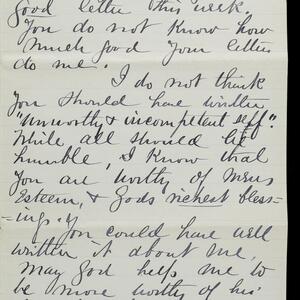 good letter this week.
You do not know how
much good your letters
do me.
I do not think
you should have written
"unworthy & incompetent self".
While all should be
humble, I know that
you are worthy of mens
Esteem, & Gods richest bless-
=ings, &
You could have well
written it about me,
May God help me to
be more worthy of his